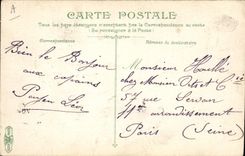 A
CARTE POSTALE
Tous les pays étrangers n'acceptent pas la Correspondance au recto
(Se renseigner à la Poste)
Correspondance
Adresse du destinataire
Bien le Bonjour
aux copains
Léon
Monsieur
chez Monsieur et Cie
57 rue Servan
11e arrondissement
Paris (Seine)